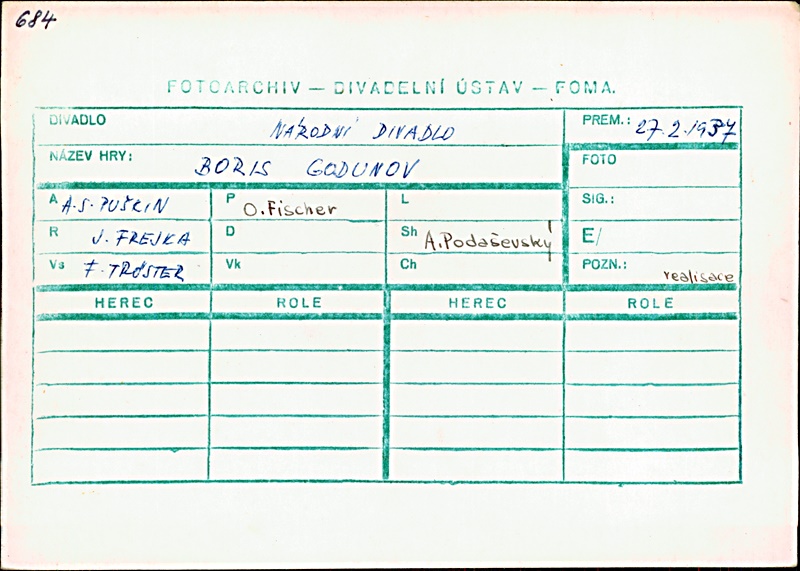 684
FOTOARCHIV — DIVADELNÍ ÚSTAV — FOMA.
DIVADLO NÁRODNÍ DIVADLO PREM.: 27.2.1937
NÁZEV HRY: BORIS GODUNOV FOTO
A A.S. PUŠKIN P O. Fischer L SIG.:
R J. FREJKA D Sh A. Podaševský E/
Vs F. TRÖSTER Vk Ch POZN.: realisace
HEREC ROLE HEREC ROLE